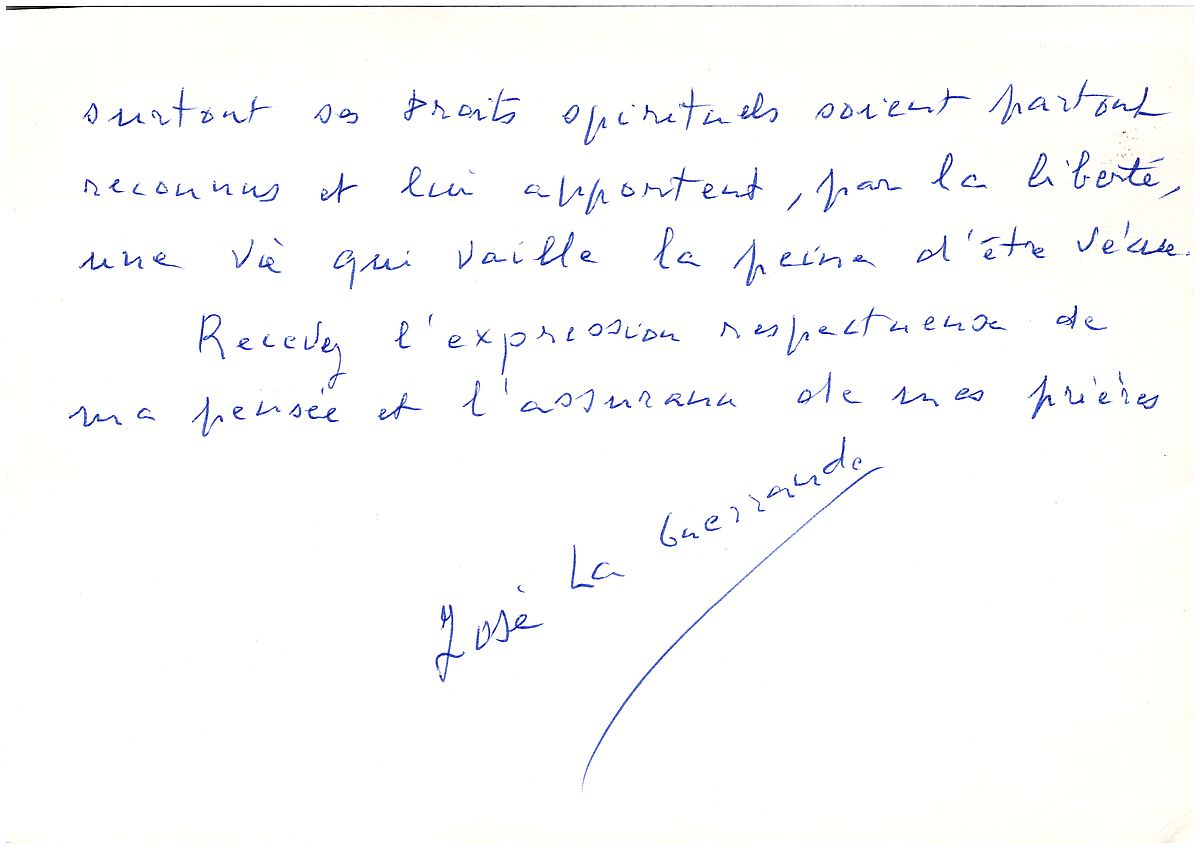 surtout ses droits spirituels soient partout
reconnus et lui apportent, par la liberté,
une vie qui vaille la peine d'être vécue.
Recevez l'expression respectueuse de
ma pensée et l'assurance de mes prières
José La Guerrande